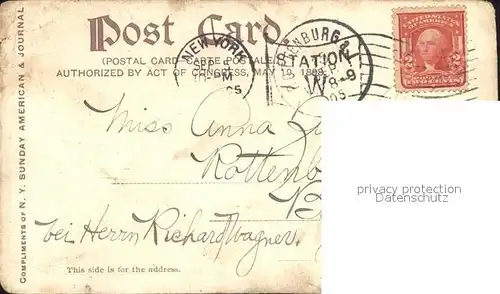 Post Card
(POSTAL CARD-CARTE POSTALE
AUTHORIZED BY ACT OF CONGRESS, MAY 19, 1898
NEW YORK
STATION
W
8-9
UNITED STATES OF AMERICA
2 2
TWO CENTS
COMPLIMENTS OF N. Y. SUNDAY AMERICAN & JOURNAL
Miss Anna
Rottenb
bei Herrn Richard Wagner,
This side is for the address.
privacy protection
Datenschutz